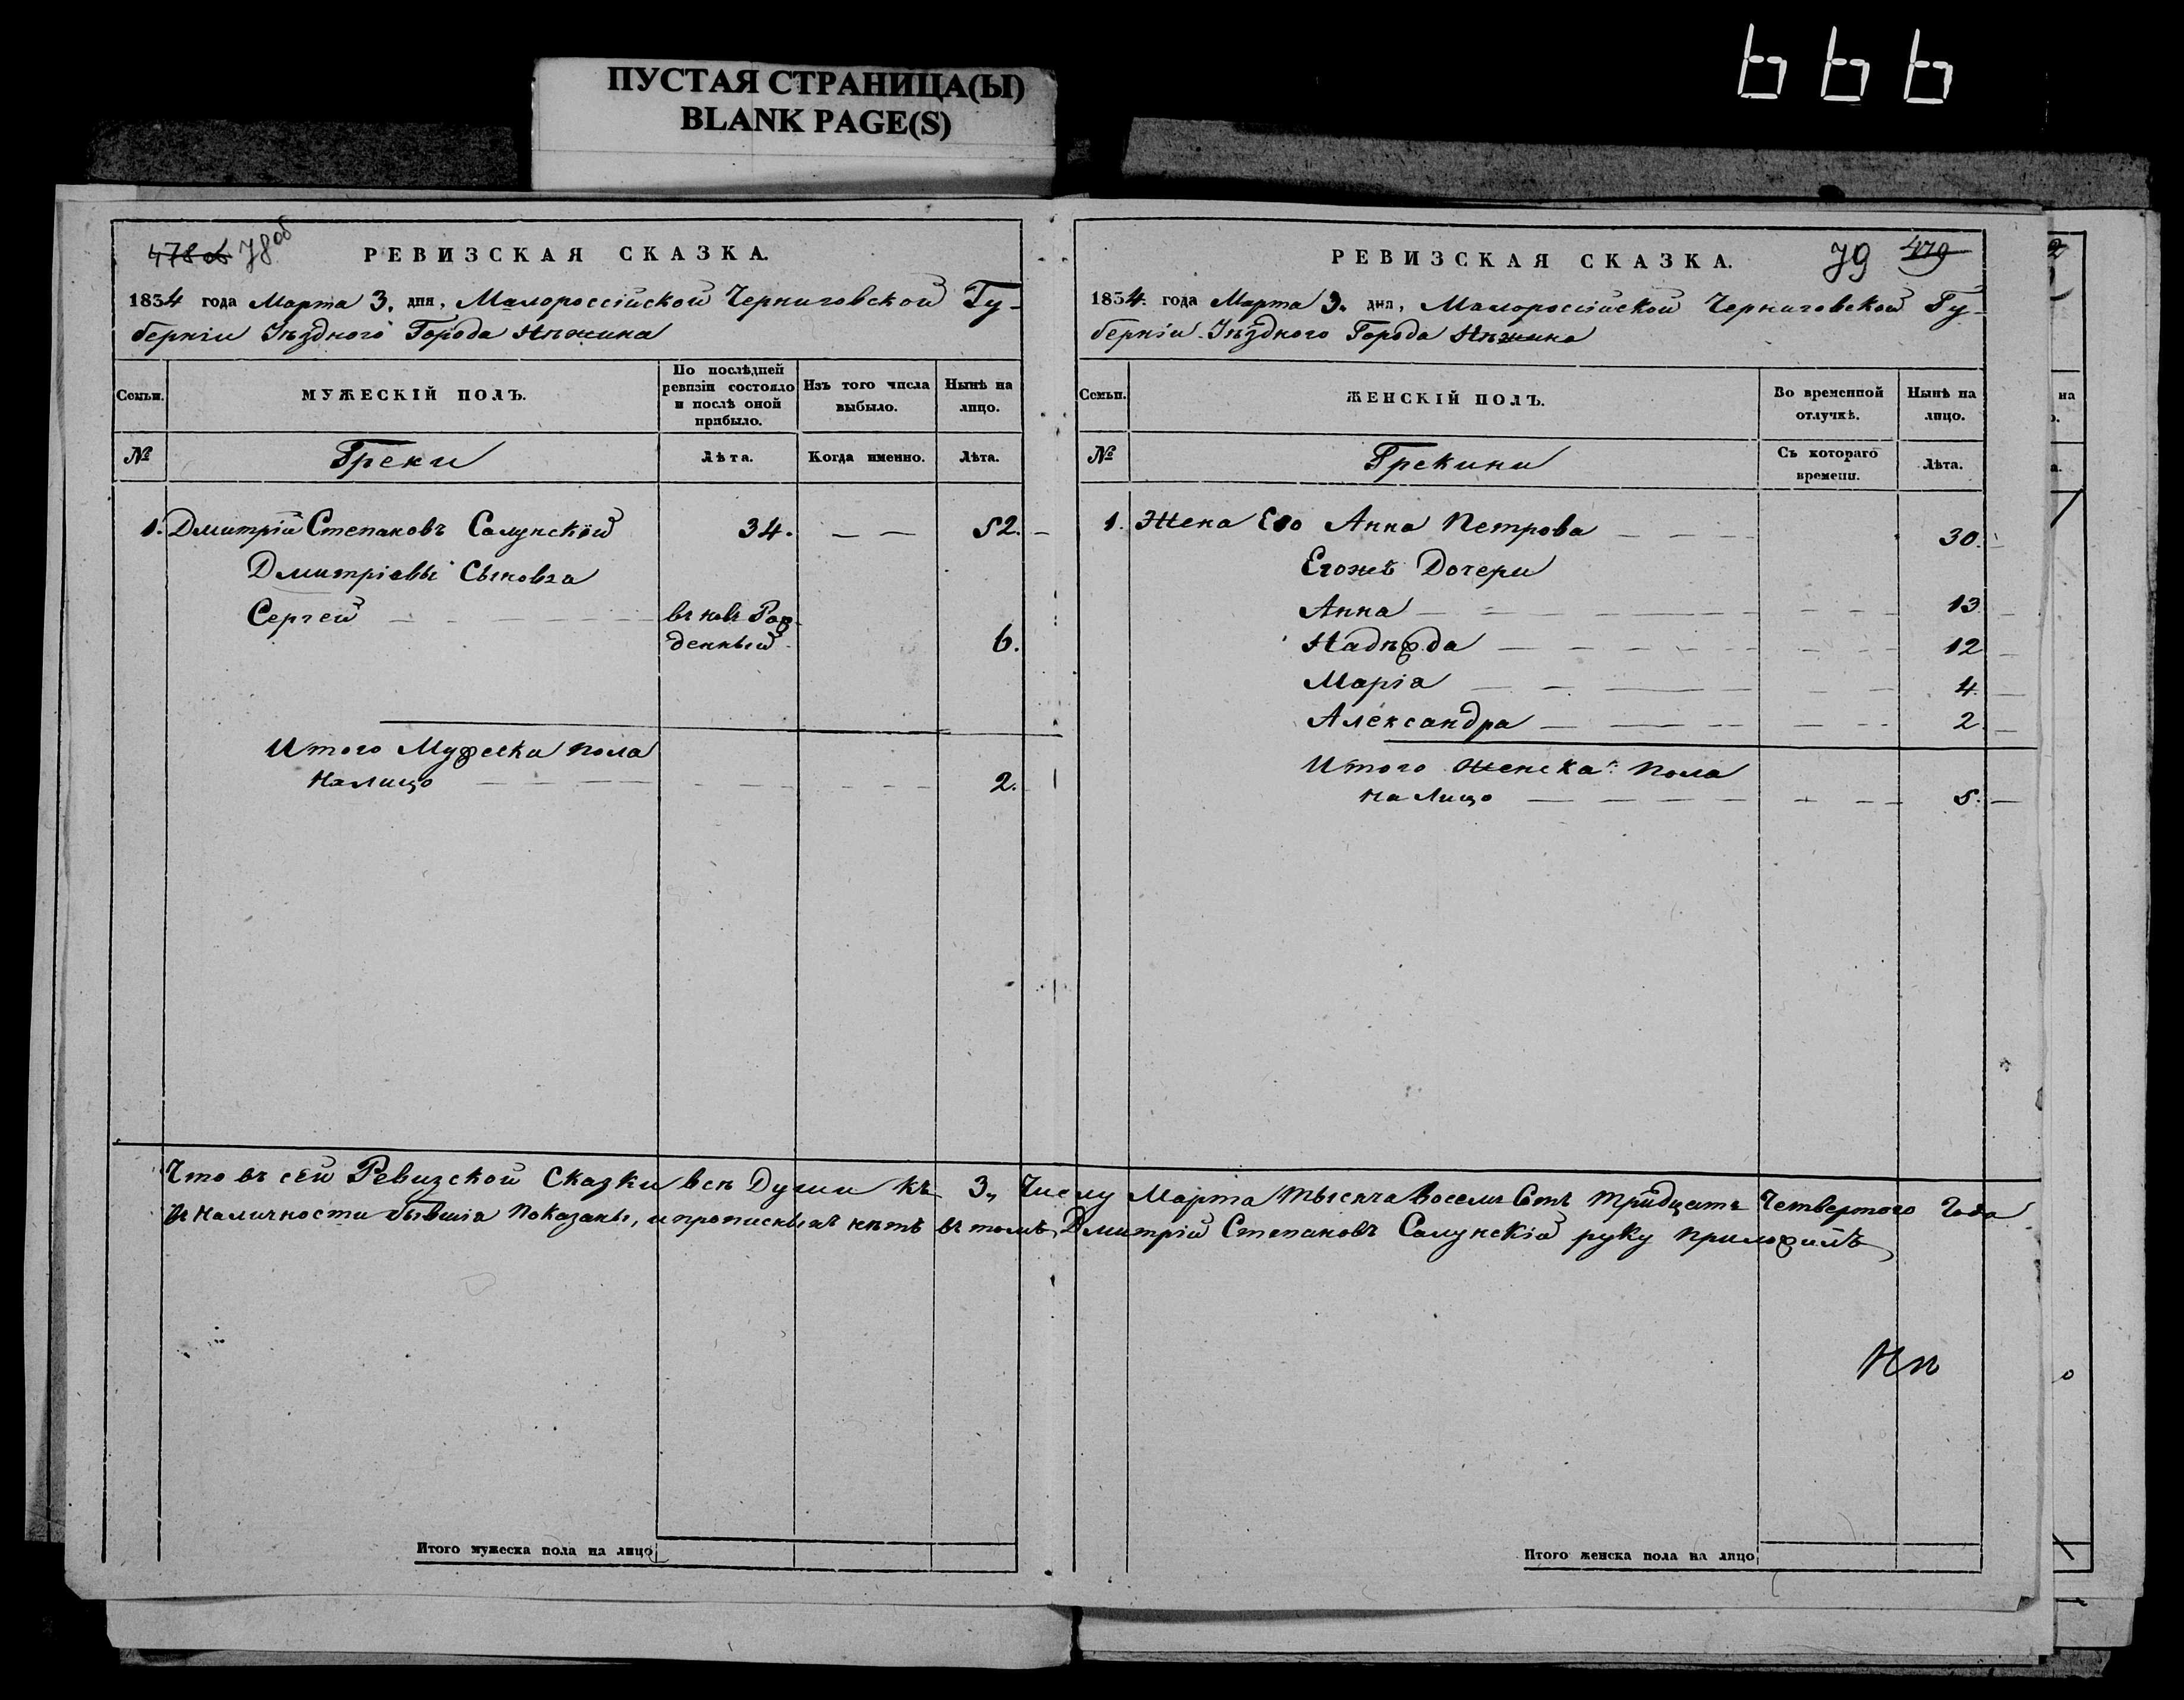 ПУСТАЯ СТРАНИЦА(Ы)
BLANK PAGE(S)
478 об 78 об
РЕВИЗСКАЯ СКАЗКА.
1834 года Марта 3. дня, Малороссійской Черниговской Гу-
берніи Уѣздного Города Нѣжина
Семьи.
МУЖЕСКІЙ ПОЛЪ.
По послѣдней ревизіи состояло и послѣ оной прибыло.
Изъ того числа выбыло.
Нынѣ на лицо.
№
Греки
Лѣта.
Когда именно.
Лѣта.
1. Дмитрій Степановъ Салунскій 34. — — 52.
Дмитріевы Сыновья
Сергей вновъ Рож
денный 6.
Итого Мужеска пола
На лицо 2.
Что въ сей Ревизской Сказки всѣ Души къ 3. Числу Марта тысяча восемь Сотъ тридцать Четвертого Года
в Наличности бывшіа показаны, и прописныхъ нѣтъ въ томъ, Дмитрій Степановъ Салунскій руку приложилъ
Итого мужеска пола на лицо
РЕВИЗСКАЯ СКАЗКА.
79 479
1834 года Марта 3. дня, Малороссійской Черниговской Гу-
берніи Уѣздного Города Нѣжина
Семьи.
ЖЕНСКІЙ ПОЛЪ.
Во временной отлучкѣ.
Нынѣ на лицо.
№
Грекини
Съ котораго времени.
Лѣта.
1. Жена Его Анна Петрова 30.
Егожъ Дочери
Анна 13
Надѣжда 12
Маріа 4.
Александра 2.
Итого женска: пола
На лицо 5.
Итого женска пола на лицо